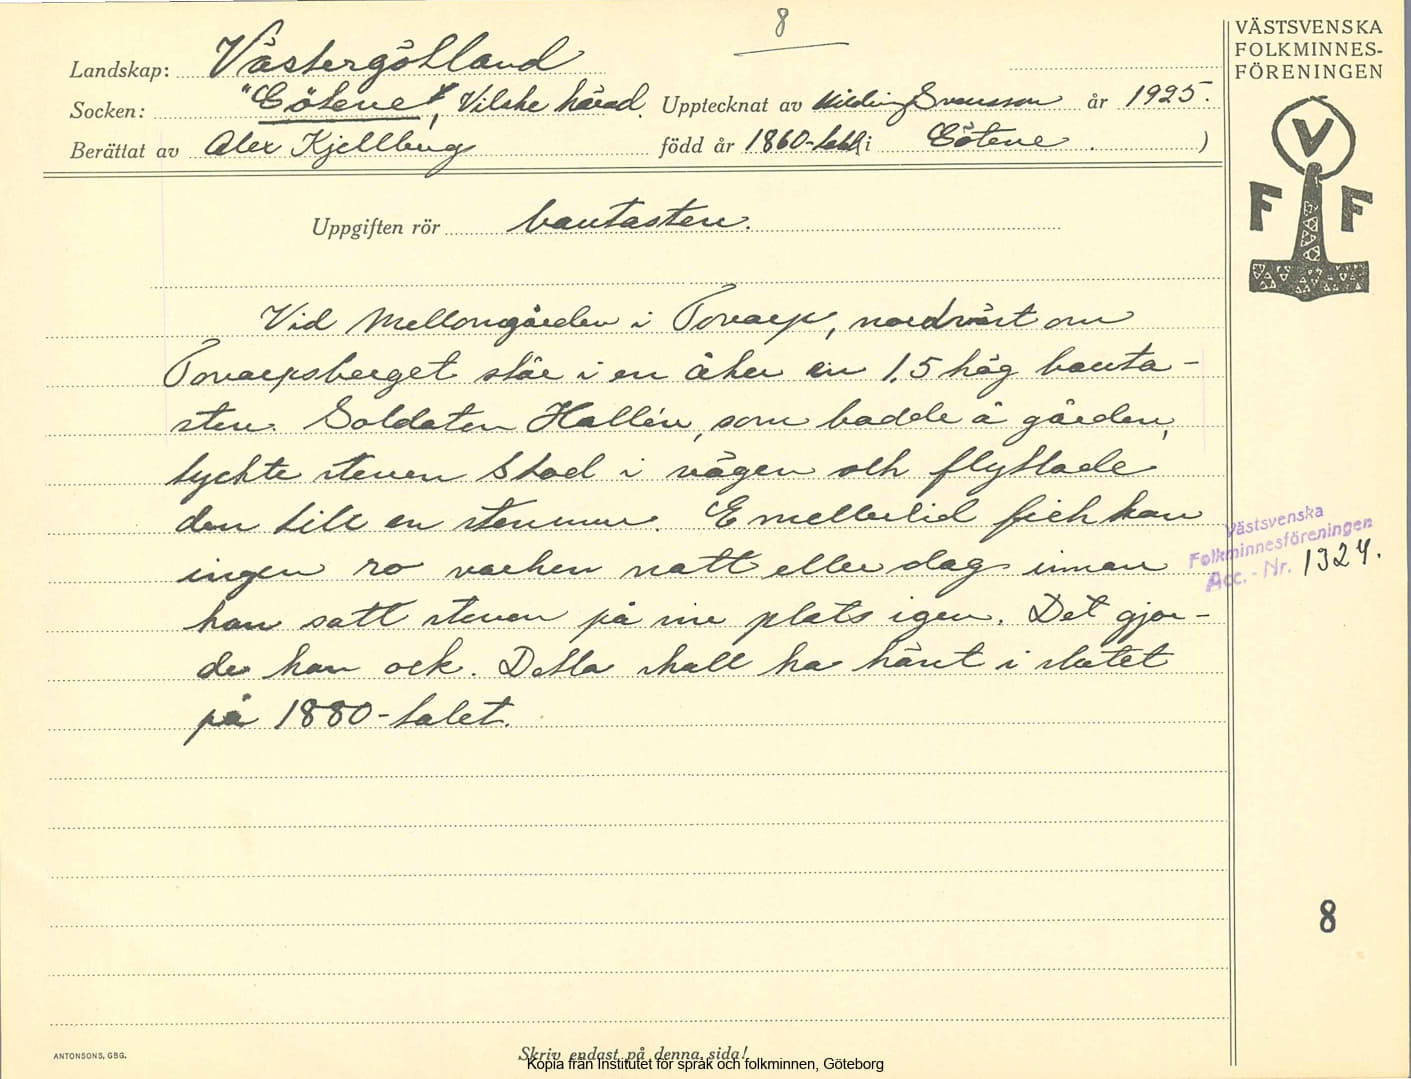 8
VÄSTSVENSKA
FOLKMINNES-
FÖRENINGEN
Landskap: Västergötland
Socken: "Götene", Vilske härad. Upptecknat av Hilding Svensson år 1925.
Berättat av Alex Kjellberg född år 1860-talet i Götene. )
V
F F
Uppgiften rör bautasten.
Vid Mellomgården i Tovarp, nordväst om
Tovarpsberget står i en åker en 1,5 hög bauta-
sten. Soldaten Hallén, som bodde å gården,
tyckte stenen stod i vägen och flyttade
den till en stenmur. Emellertid fick han
ingen ro varken natt eller dag innan
han satt stenen på sin plats igen. Det gjor-
de han ock. Detta skall ha hänt i slutet
på 1880-talet.
Västsvenska
Folkminnesföreningen
Acc. - Nr. 1324.
8
ANTONSONS, GBG.
Skriv endast på denna sida!
Kopia från Institutet för språk och folkminnen, Göteborg